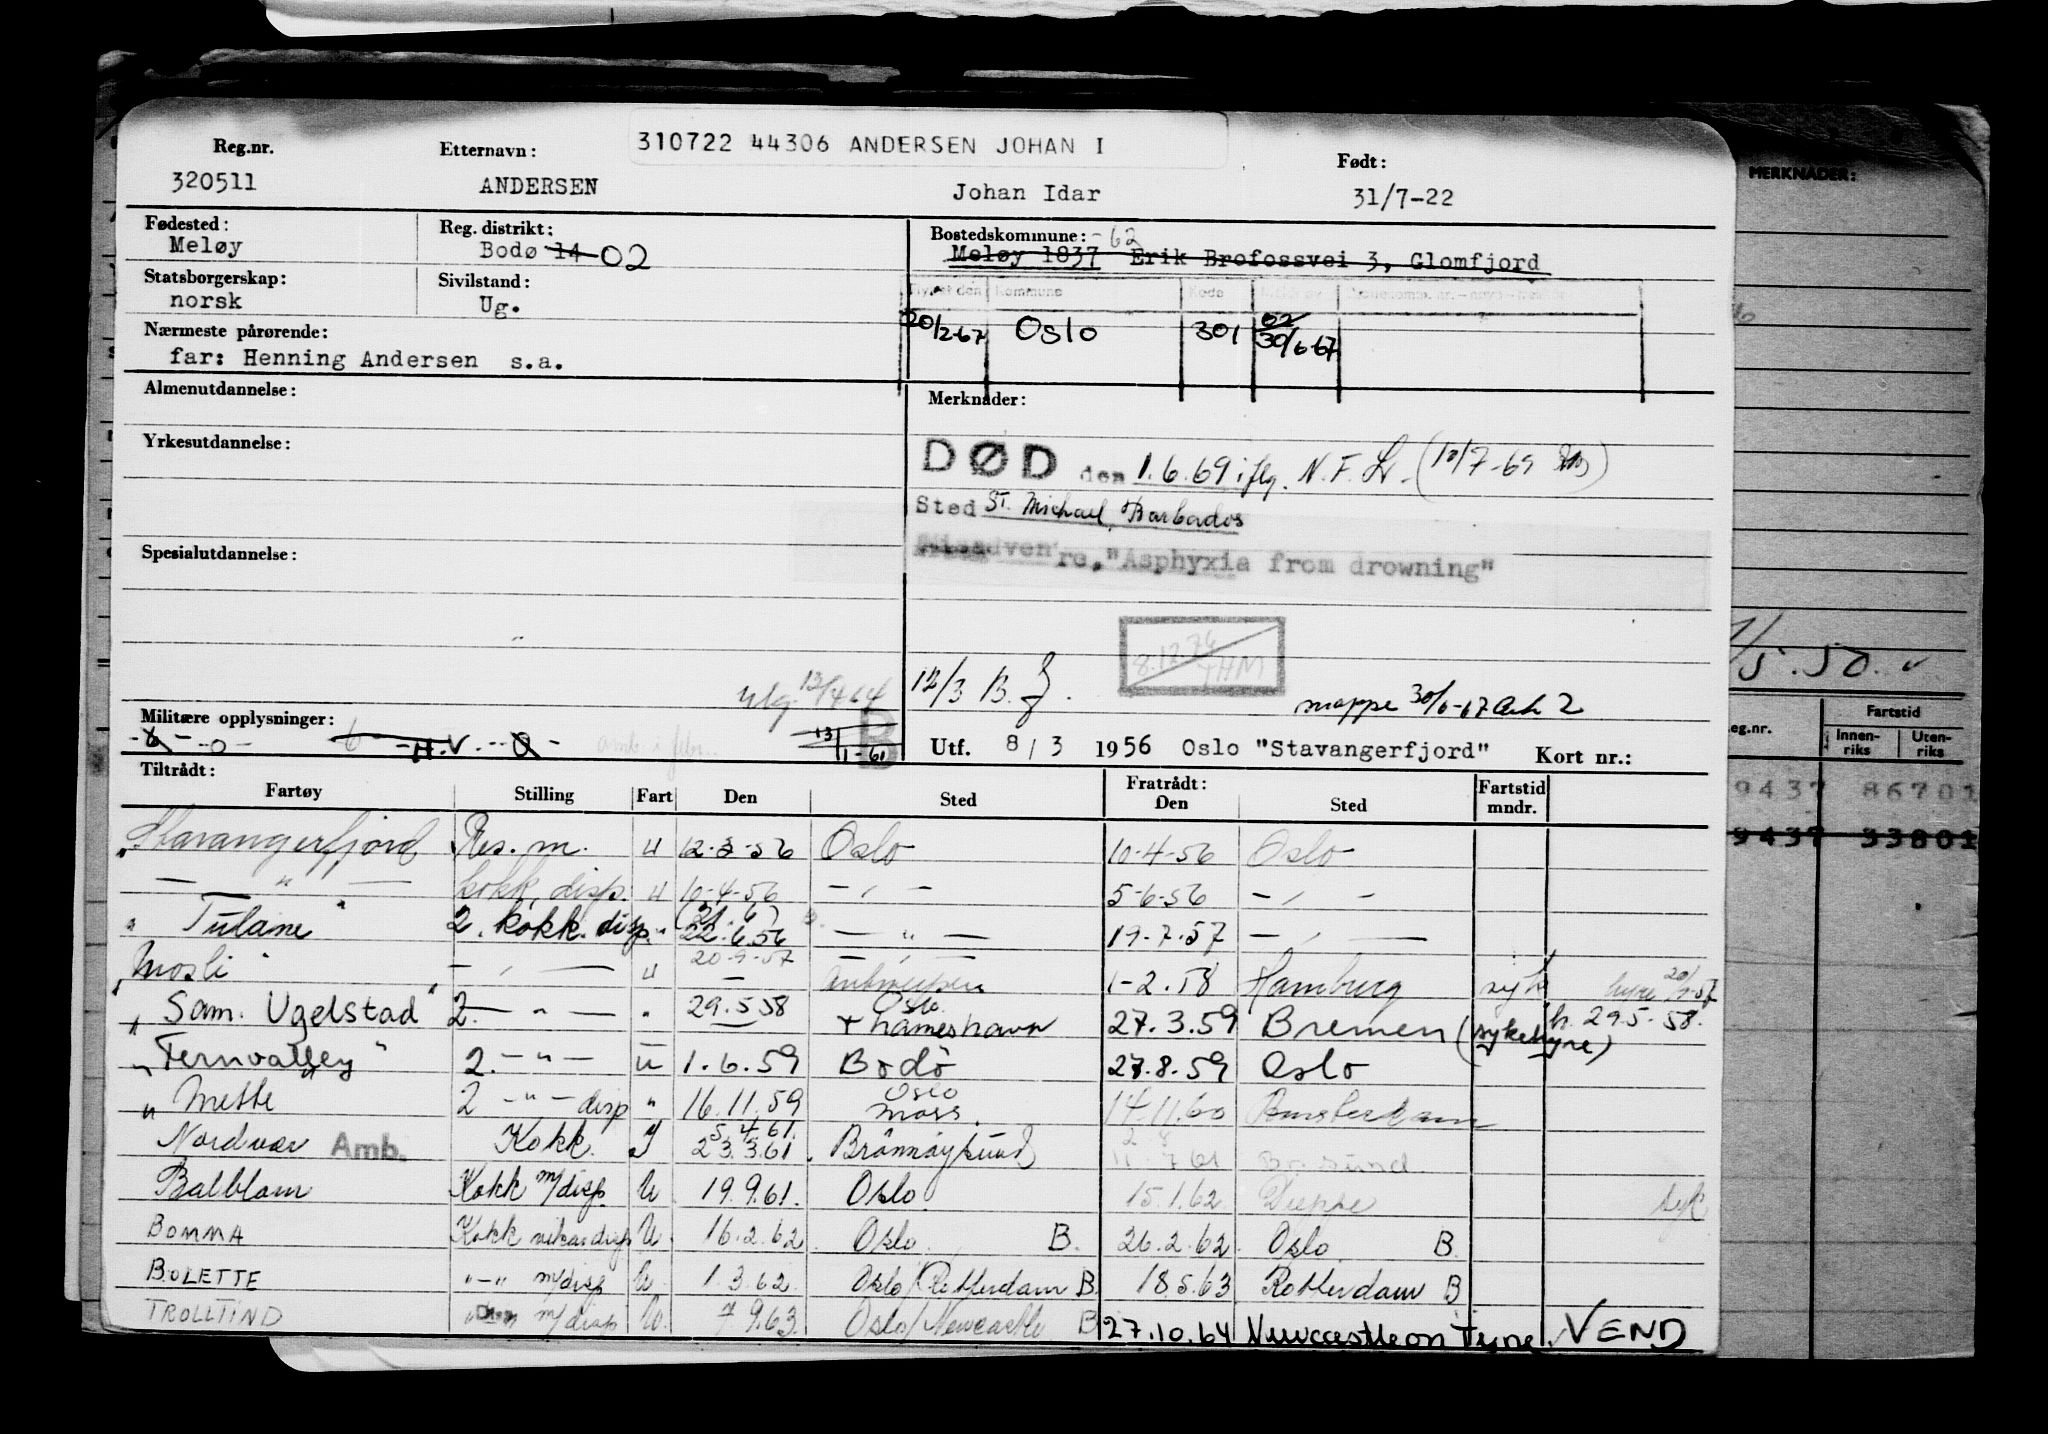 310722 44306 ANDERSEN JOHAN I
Reg.nr. Etternavn: Født:
320511 ANDERSEN Johan Idar 31/7-22
Fødested: Reg. distrikt: Bostedskommune: -62
Meløy Bodø 14 02 Meløy 1837 Erik Brofossvei 3, Glomfjord
Statsborgerskap: Sivilstand:
norsk Ug.
Kommune Kode
20/2-67 Oslo 301 02 30/6-67
Nærmeste pårørende:
far: Henning Andersen s.a.
Almenutdannelse: Merknader:
Yrkesutdannelse:
DØD den 1.6.69 iflg. N.F. (10/7-69)
Sted St. Michael, Barbados
Spesialutdannelse:
re, "Asphyxia from drowning"
8.12.76 THM
12/3 B.
mappe 30/6-67
Militære opplysninger:
-o- H.V. 13/1-61 B
Utf. 8/3 1956 Oslo "Stavangerfjord" Kort nr.:
Tiltrådt: Fratrådt:
Fartøy Stilling Fart Den Sted Den Sted Fartstid mndr.
"Stavangerfjord Res. m. U 12-3-56 Oslo 10-4-56 Oslo
— " — kokk disp. U 10-4-56 — " — 5-6-56 — " —
"Tulane" 2. kokk disp. " (21.6) 22.6.56 — " — 19.7.57 — " —
"Mosli" — " — U 20-9-57 — Antwerpen 1-2.58 Hamburg syk hyre 20/9-57
"Sam. Ugelstad" 2. — " — " 29.5.58 Oslo + Thameshavn 27.3.59 Bremen (sykehyre) h. 29.5-58.
"Fernvalley" 2. — " — U 1.6.59 Bodö 27.8.59 Oslo
"Mette" 2 — " — disp " 16.11.59 Oslo Moss. 14.11.60 Amsterdam
Nordvær Amb. Kokk. I 5.4.61. 23.3.61. Brönnöysund 61 Br.sund.
Balblom Kokk m/disp U 19.9.61. Oslo 15.1.62 Dieppe syk
BOMMA Kokk vikar disp U 16.2.62 Oslo B. 26.2.62. Oslo B.
BOLETTE " — " m/disp U. 1.3.62. Oslo/Rotterdam B. 18.5.63 Rotterdam B
TROLLTIND " — " m/disp U. 7.9.63. Oslo/Newcastle B 27.10.64 Newcastle on Tyne. VEND
MERKNADER:
1/5.50.
eg.nr. Fartstid
Innen-riks Uten-riks
9437 86701
9437 33801